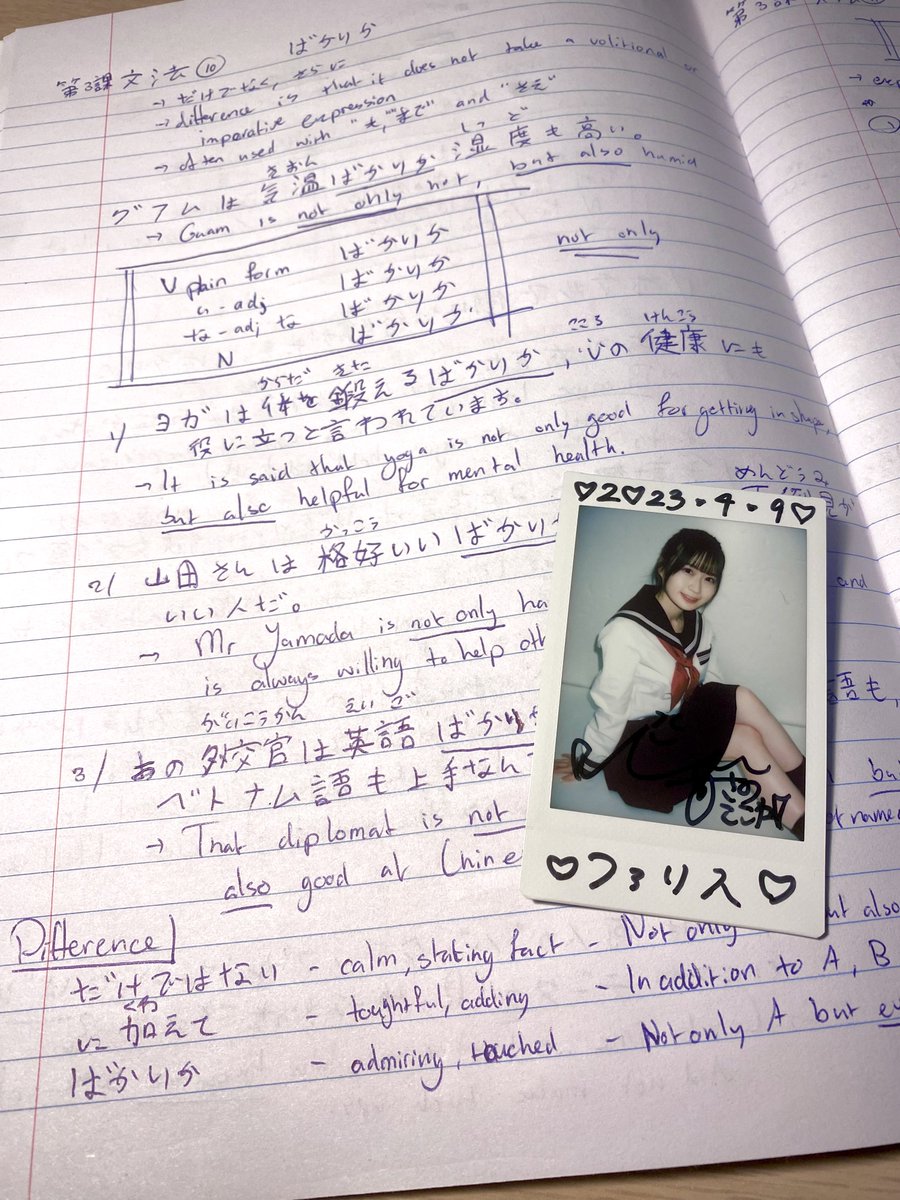 第3課文法⑩ ばかりか
→ だけでなく, さらに
→ difference is that it does not take a volitional or
imperative expression
→ often used with "も", "まで" and "さえ"
きおん しつ ど
グアムは気温ばかりか湿度も高い。
→ Guam is not only hot, but also humid
V plain form ばかりか
い-adj ばかりか
な-adj な ばかりか
N ばかりか
not only
からだ きた こころ けんこう
1) ヨガは体を鍛えるばかりか, 心の健康にも
役に立つと言われています。
→ It is said that yoga is not only good for getting in shape,
but also helpful for mental health.
かっこう めんどうみ
2) 山田さんは格好いいばかり 見が
いい人だ。 and
→ Mr Yamada is not only ha
is always willing to help oth
がいこうかん えいご
3) あの外交官は英語ばかり 語も,
ベトナム語も上手なん
→ That diplomat is not but
also good at Chine
Difference
だけではない - calm, stating fact - Not only but also
くわ
に加えて - toughtful, adding - In addition to A, B
ばかりか - admiring, touched - Not only A but
♡2♡23.4.9♡
♡フェリス♡